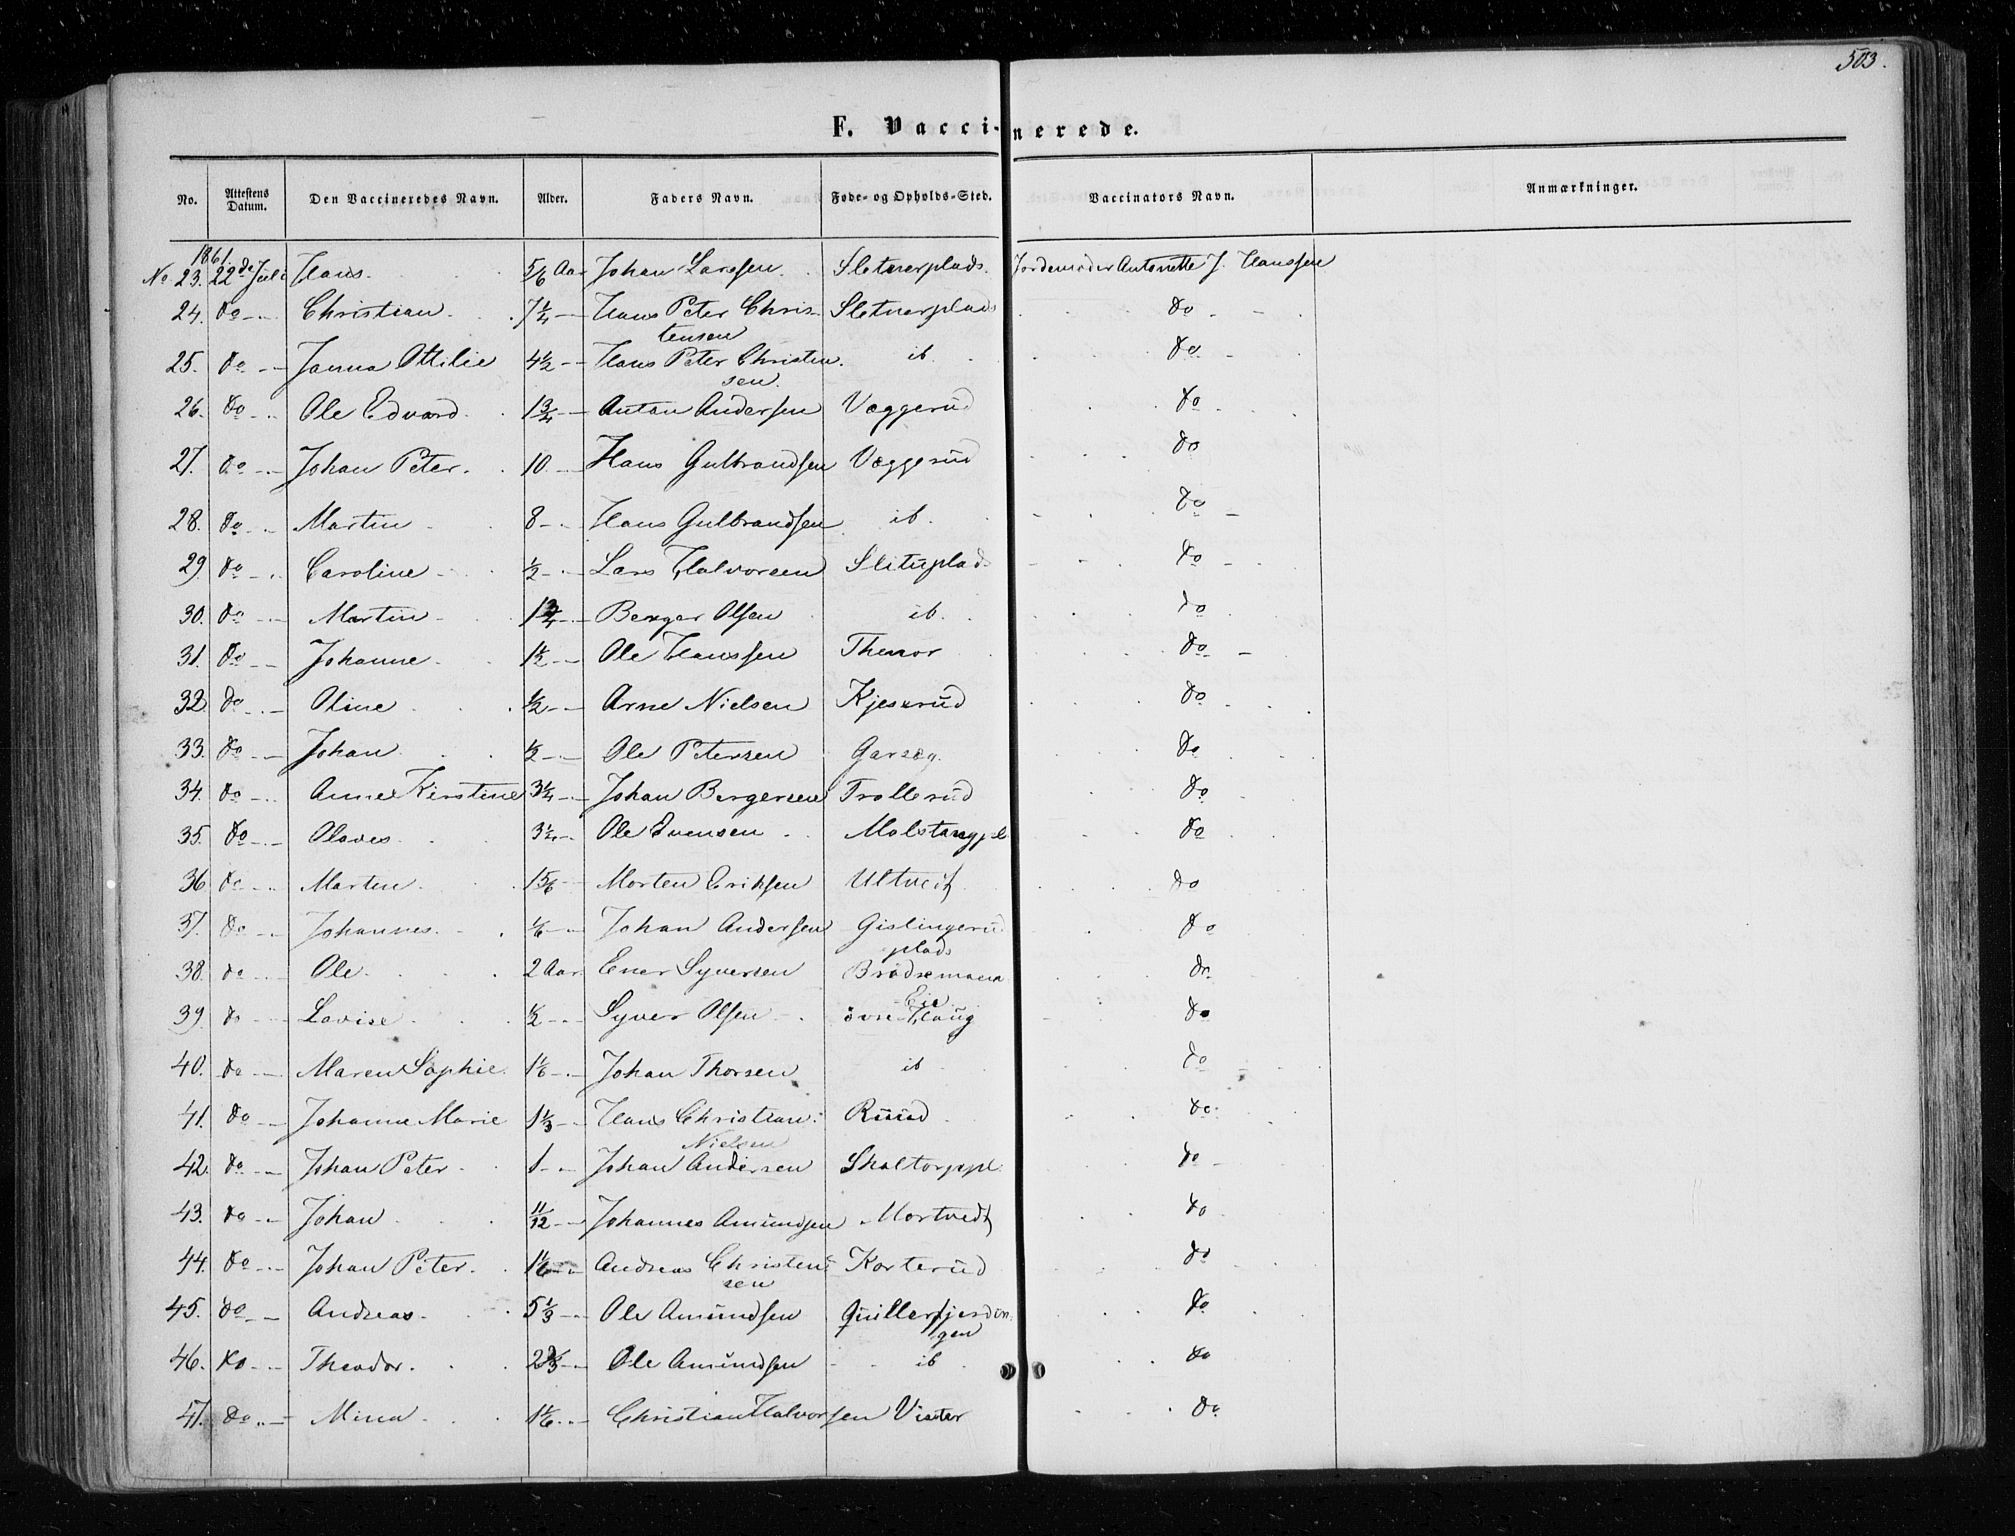 503.
F. Vaccinerede.
No. Attestens Datum. Den Vaccineredes Navn. Alder. Faders Navn. Føde- og Opholds-Sted. Vaccinators Navn. Anmærkninger.
1861.
No 23. 22de Juli Hans 5/6 Aar Johan Larssen Sletnerplads. Jordemoder Antonette J. Hanssen
24. do Christian 7 1/4 Hans Peter Chris- Sletnerplads do
tensen
25. do Janna Ottilie 4 1/2 Hans Peter Christen ib do
sen.
26. do Ole Edvard 1 3/4 Anton Andersen Væggerud do
27. do Johan Peter. 10 Hans Gulbrandsen Væggerud do
28. do Martin 8 Hans Gulbrandsen ib. do
29 do Caroline 1/2 Lars Halvorsen Slituplads do
30. do Martin 1 3/4 Berger Olsen ib. do
31. do Johanne 1 1/2 Ole Hanssen Thenor do
32 do Oline 1/2 Arne Nielsen Kjeserud do
33. do Johan 1/2 Ole Petersen Garseg. do
34. do Anne Kirstine 3 1/4 Johan Bergersen Trollerud do
35. do Olaves 3 1/4 Ole Evensen Molstangpl do
36 do Martin 1 5/6 Morten Eriksen Ultvedt do
37. do Johannes 1/6 Johan Andersen Gislingerud do
plads
38. do Ole 2 Aar Ener Syversen Brødsemana do
Eie
39 do Lovise 1/2 Syver Olsen øvre Haug do
40. do Maren Sophie 1 1/6 Johan Thorsen ib do
41. do Johanne Marie 1 1/3 Hans Christian Ruud do
Nielsen
42. do Johan Peter 1 Johan Andersen Skaltorppl. do
43. do Johan 11/12 Johannes Amundsen Mortvedt do
44. do Johan Peter. 1 1/6 Andreas Christen Korterud do
sen
45. do Andreas 5 1/3 Ole Amundsen Quillerfjerdin do
gen
46. do Theodor. 2 2/3 Ole Amundsen ib do
47. do Mina 1 1/6 Christian Halvorsen Vister do